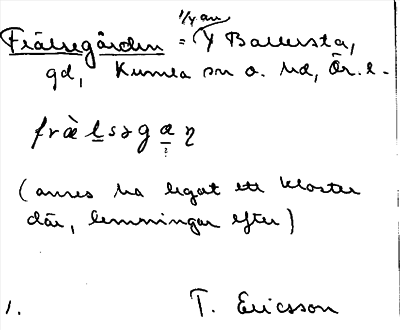 1/4 av
Frälsegården = Y Ballersta,
gd, Kumla sn o. hd, Ör. l.
fræ̀lsəgaη
(anses ha legat ett kloster
där, lämningar efter)
1. T. Ericsson